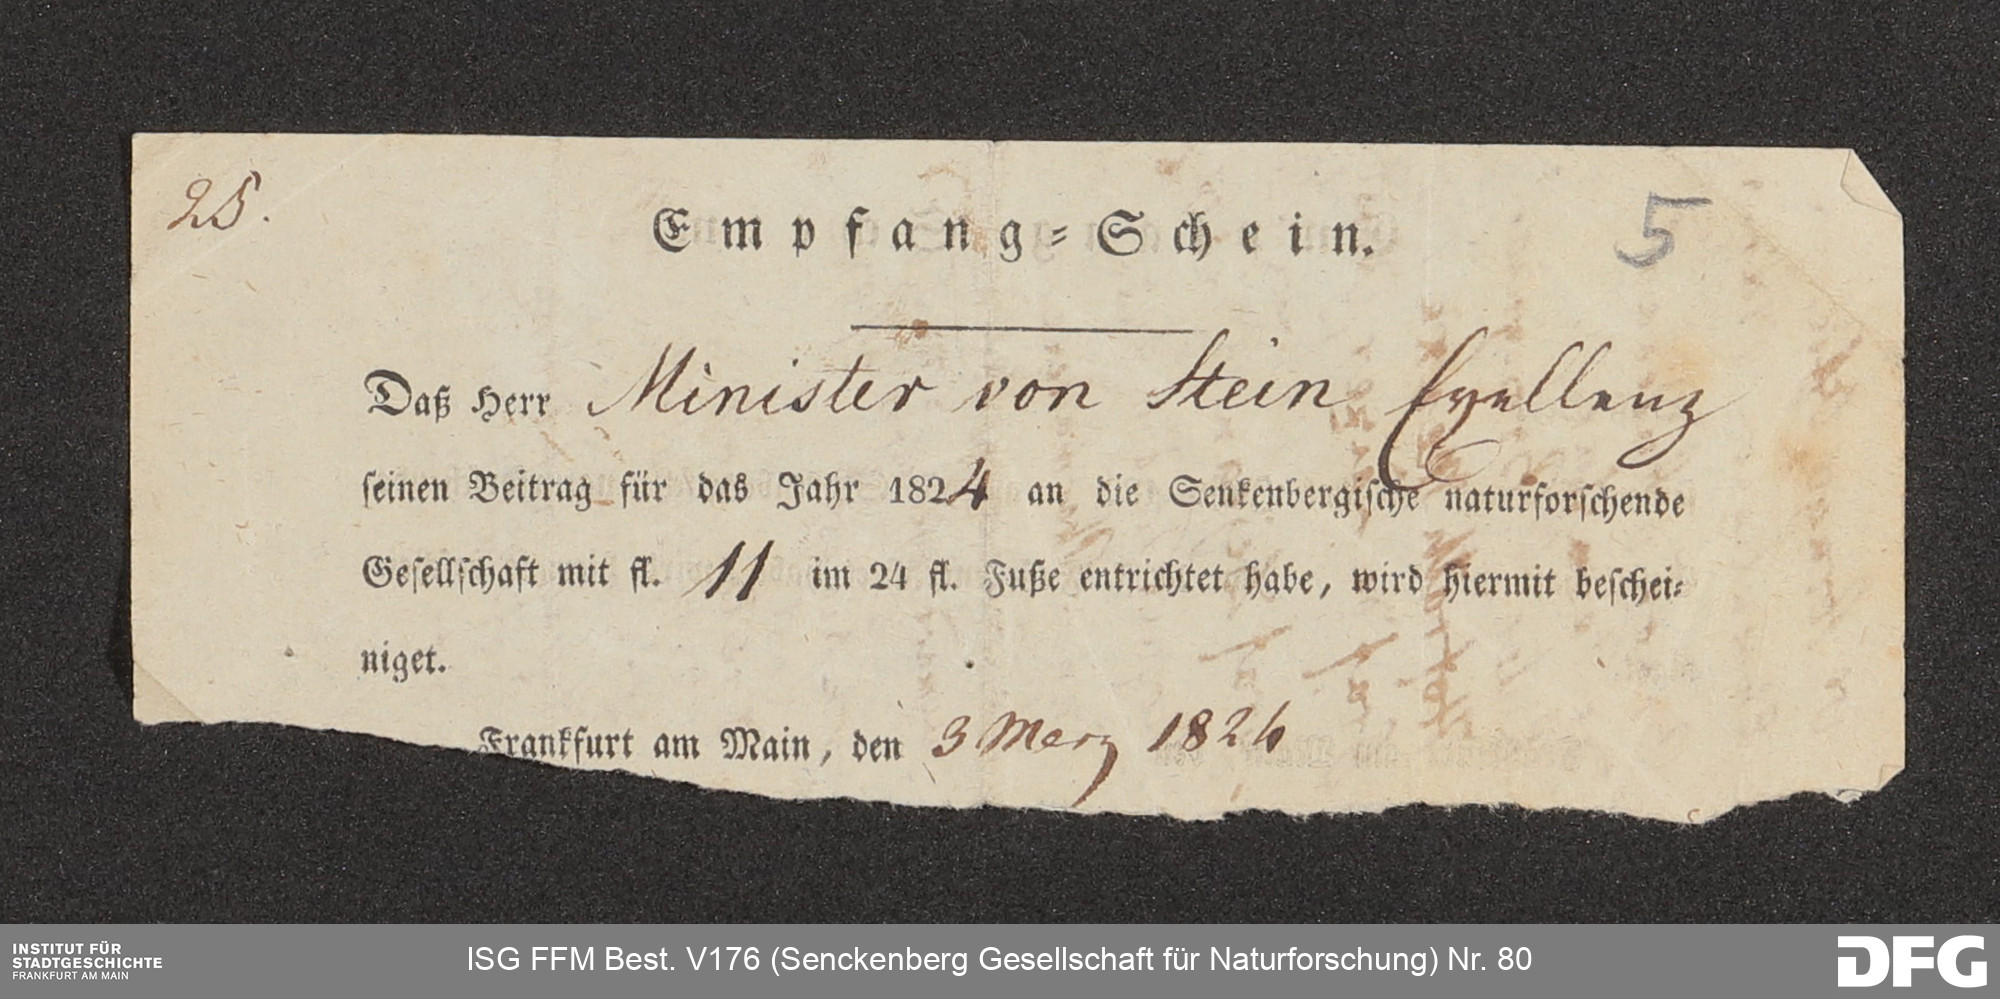 25.
5
Empfang-Schein.
Daß Herr Minister von Stein Exellenz
seinen Beitrag für das Jahr 1824 an die Senkenbergische naturforschende
Gesellschaft mit fl. 11 im 24 fl. Fuße entrichtet habe, wird hiermit beschei-
niget.
Frankfurt am Main, den 3 Merz 1826
INSTITUT FÜR
STADTGESCHICHTE
FRANKFURT AM MAIN
ISG FFM Best. V176 (Senckenberg Gesellschaft für Naturforschung) Nr. 80
DFG